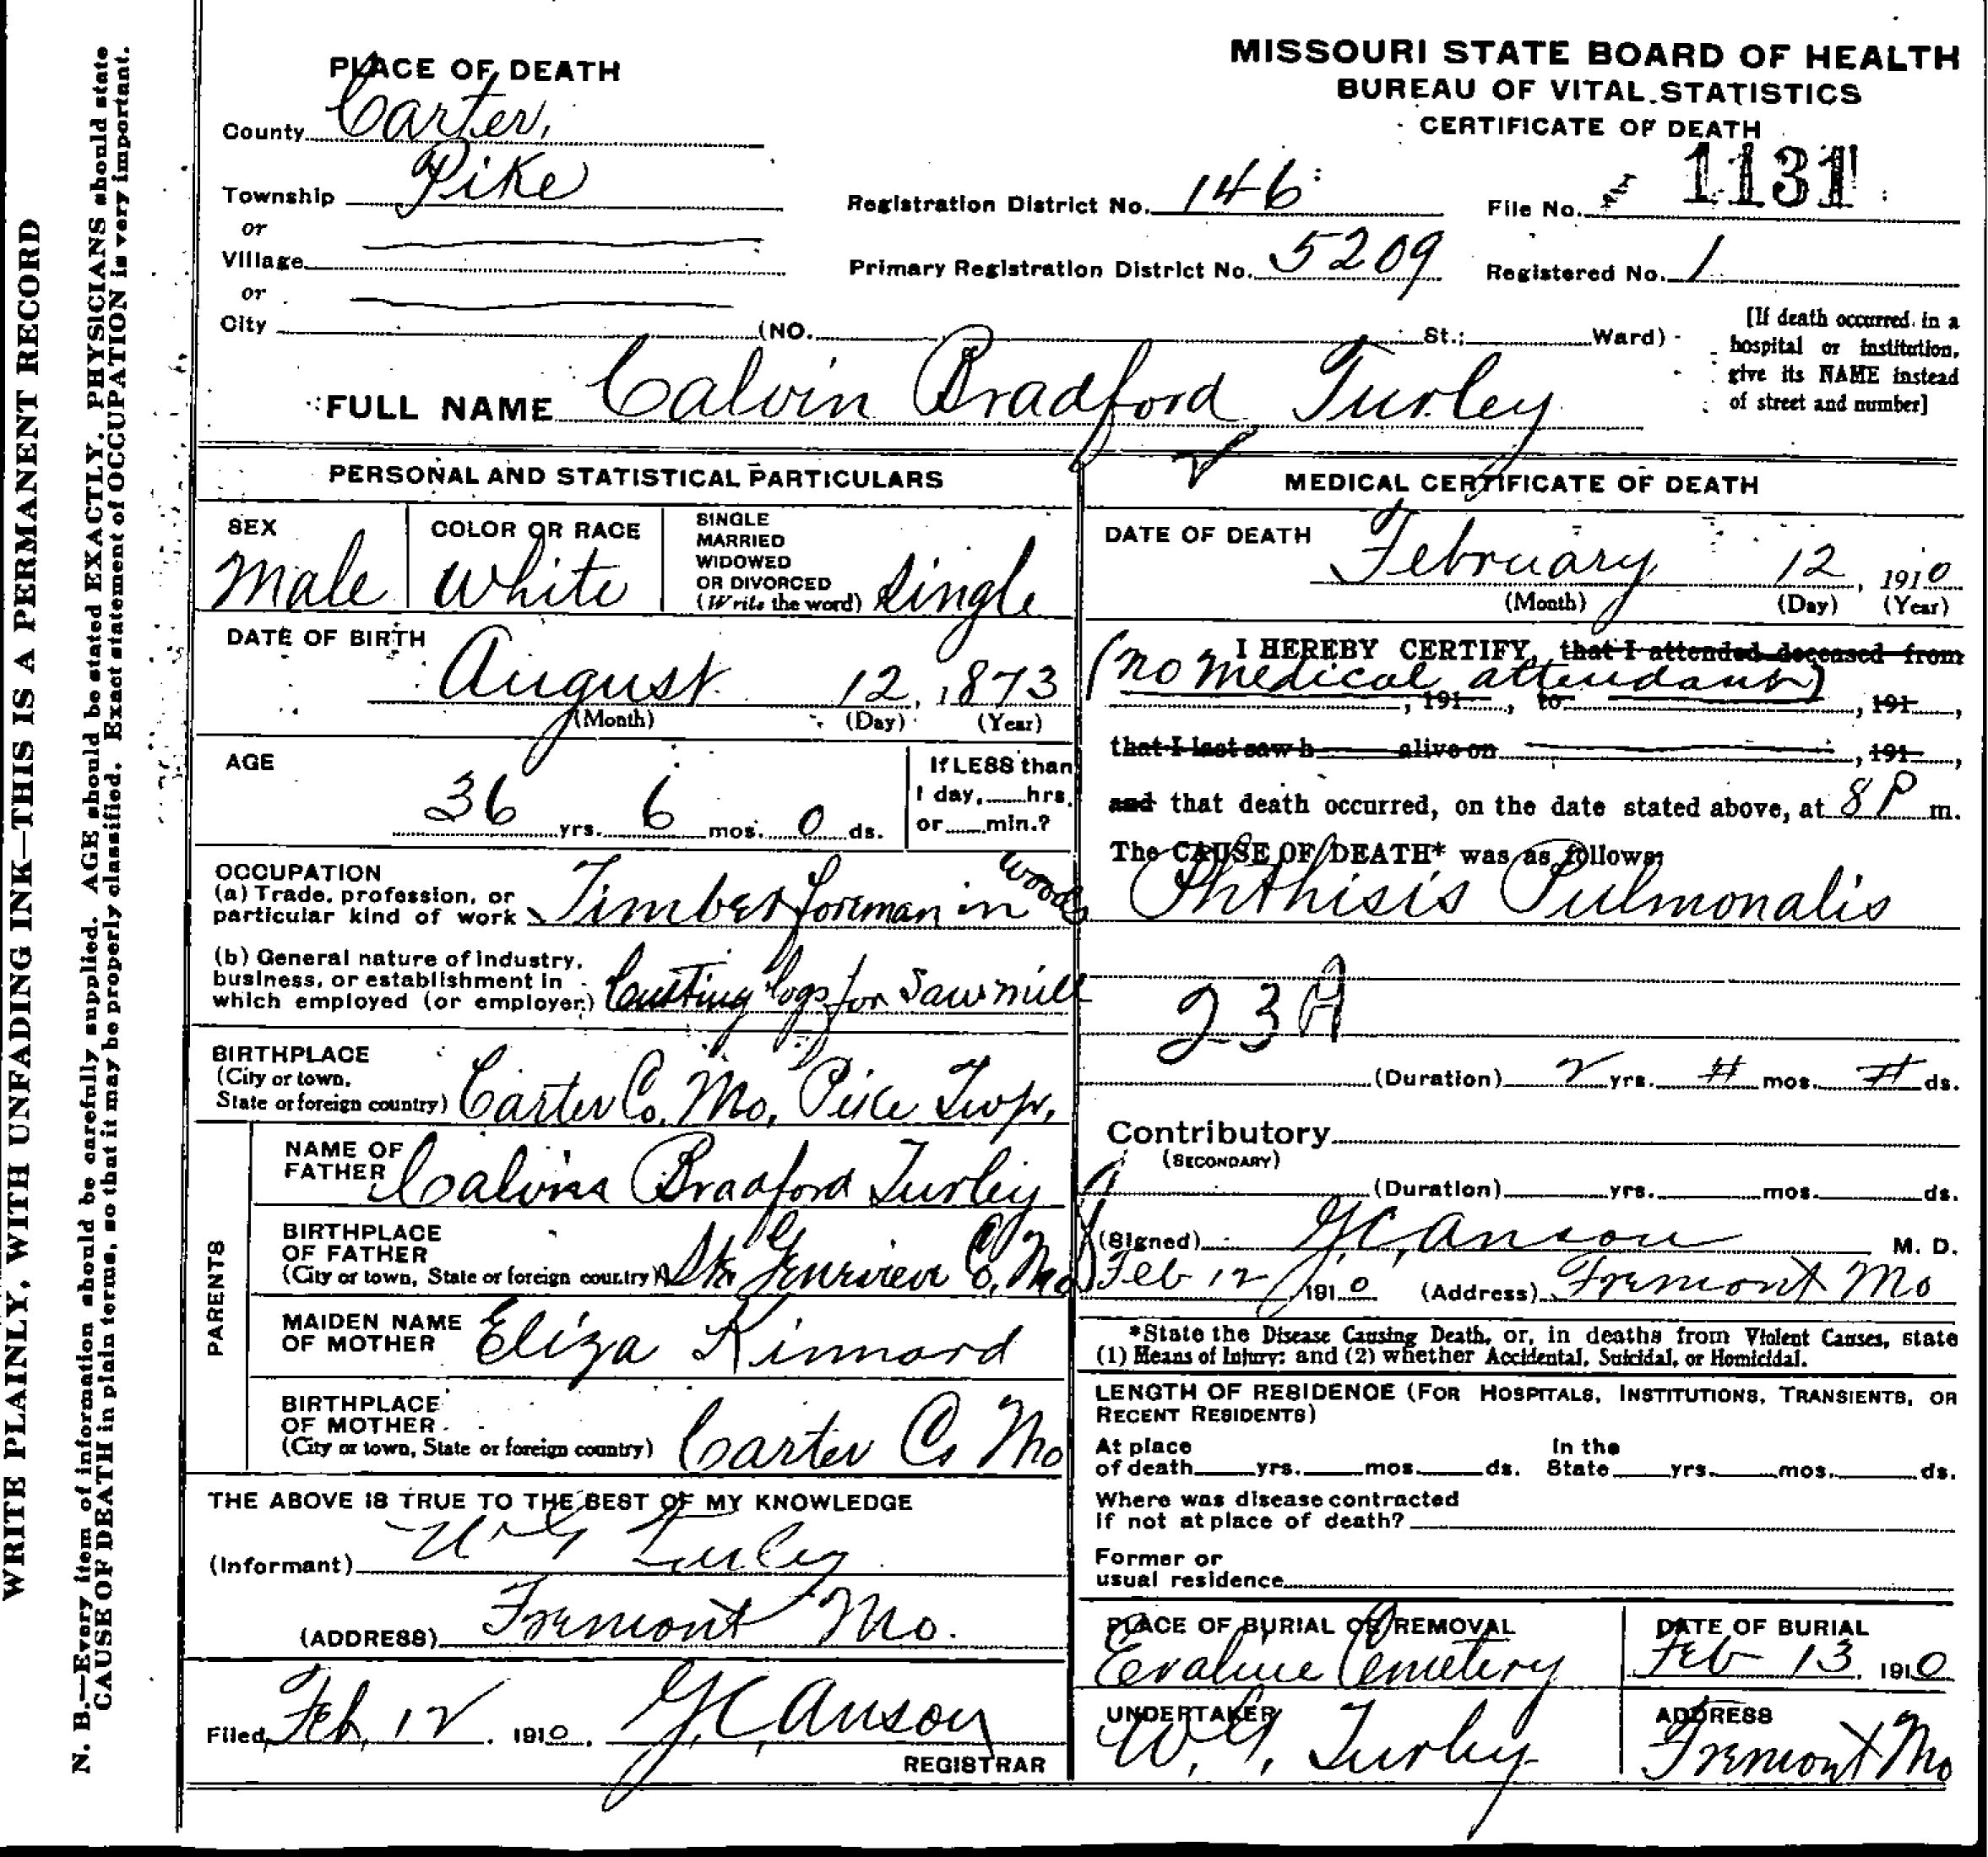 WRITE PLAINLY, WITH UNFADING INK—THIS IS A PERMANENT RECORD
N. B.—Every item of information should be carefully supplied. AGE should be stated EXACTLY. PHYSICIANS should state
CAUSE OF DEATH in plain terms, so that it may be properly classified. Exact statement of OCCUPATION is very important.
MISSOURI STATE BOARD OF HEALTH
BUREAU OF VITAL STATISTICS
CERTIFICATE OF DEATH
PLACE OF DEATH
County Carter,
Township Pike
or
Village
or
City (NO. St.; Ward)
Registration District No. 146
File No. 1131
Primary Registration District No. 5209
Registered No. 1
[If death occurred in a
hospital or institution,
give its NAME instead
of street and number]
FULL NAME Calvin Bradford Turley
PERSONAL AND STATISTICAL PARTICULARS
SEX
Male
COLOR OR RACE
White
SINGLE
MARRIED
WIDOWED
OR DIVORCED
(Write the word) Single
DATE OF BIRTH
August 12, 1873
(Month) (Day) (Year)
AGE
36 yrs. 6 mos. 0 ds.
If LESS than
1 day, hrs.
or min.?
OCCUPATION
(a) Trade, profession, or
particular kind of work Timber foreman in woods
(b) General nature of industry,
business, or establishment in
which employed (or employer) Cutting logs for Sawmill
BIRTHPLACE
(City or town,
State or foreign country) Carter Co. Mo, Pike Twp.
PARENTS
NAME OF
FATHER Calvin Bradford Turley
BIRTHPLACE
OF FATHER
(City or town, State or foreign country) Ste Genevieve Co, Mo
MAIDEN NAME
OF MOTHER Eliza Kinnard
BIRTHPLACE
OF MOTHER
(City or town, State or foreign country) Carter Co Mo
THE ABOVE IS TRUE TO THE BEST OF MY KNOWLEDGE
(Informant) W G Turley
(ADDRESS) Fremont Mo.
Filed, Feb, 12, 1910, G.C. Anson
REGISTRAR
MEDICAL CERTIFICATE OF DEATH
DATE OF DEATH
February 12, 1910
(Month) (Day) (Year)
I HEREBY CERTIFY, that I attended deceased from
(no medical attendant)
, 191 , to , 191 ,
that I last saw h alive on , 191 ,
and that death occurred, on the date stated above, at 8 P m.
The CAUSE OF DEATH* was as follows:
Phthisis Pulmonalis
23 A
(Duration) 2 yrs. # mos. # ds.
Contributory
(SECONDARY)
(Duration) yrs. mos. ds.
(Signed) G.C. Anson M. D.
Feb 12, 1910 (Address) Fremont Mo
*State the Disease Causing Death, or, in deaths from Violent Causes, state
(1) Means of Injury; and (2) whether Accidental, Suicidal, or Homicidal.
LENGTH OF RESIDENCE (FOR HOSPITALS, INSTITUTIONS, TRANSIENTS, OR
RECENT RESIDENTS)
At place
of death yrs. mos. ds.
In the
State yrs. mos. ds.
Where was disease contracted
if not at place of death?
Former or
usual residence
PLACE OF BURIAL OR REMOVAL
Evaline Cemetery
DATE OF BURIAL
Feb 13, 1910
UNDERTAKER
W. G. Turley
ADDRESS
Fremont Mo